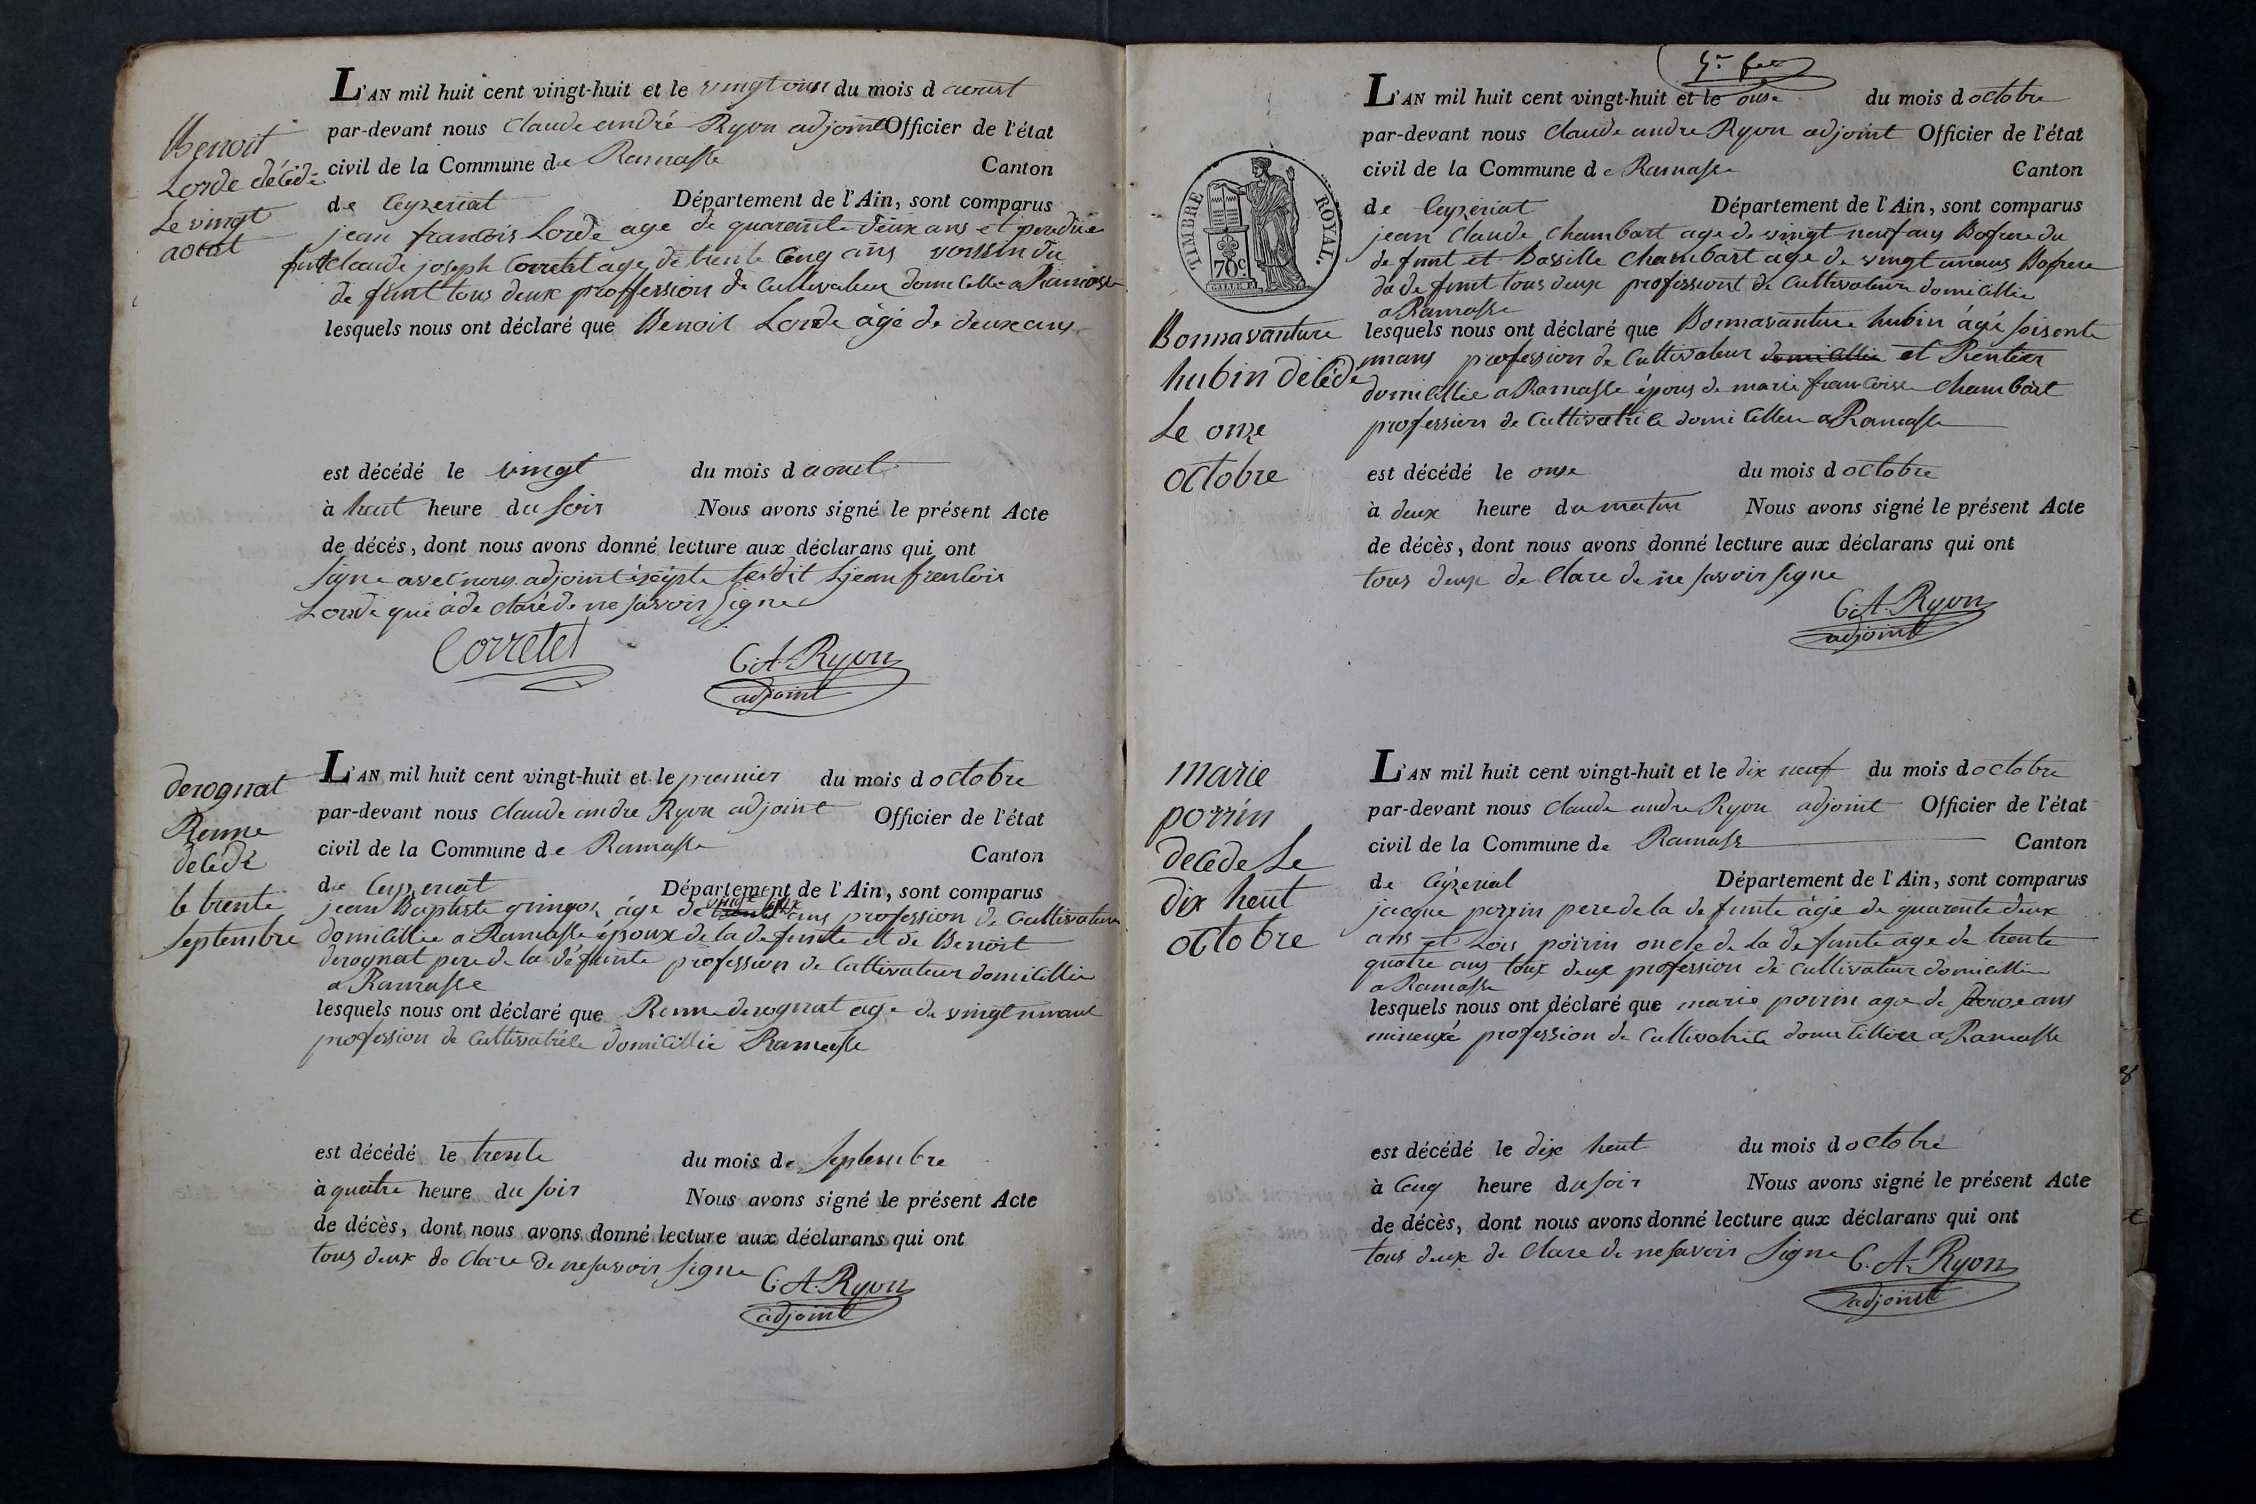 L'AN mil huit cent vingt-huit et le vingt un du mois d aoust
par-devant nous Claude andré Ryon adjoint Officier de l'état
civil de la Commune de Ramasse Canton
de Ceyzeriat Département de l'Ain, sont comparus
jean francois Lorde age de quarente deux ans et pere du de
funt Claude joseph Corretet age de trente Cenq ans voissin du
de funt tous deux proffession de Cultivateur domicillie a Ramasse
lesquels nous ont déclaré que Benoit Lorde âgé de deux ans
est décédé le vingt du mois d aoust
à heut heure du soir Nous avons signé le présent Acte
de décés, dont nous avons donné lecture aux déclarans qui ont
signe avec nous adjoint excepte le dit jean francois
Lorde qui à de claré de ne savoir signe
Corretet
C. A. Ryon
adjoint
Benoit
Lorde décédé
Le vingt
aout
L'AN mil huit cent vingt-huit et le premier du mois d octobre
par-devant nous Claude andre Ryon adjoint Officier de l'état
civil de la Commune de Ramasse Canton
de Ceyzeriat Département de l'Ain, sont comparus
jean Baptiste age de vingt six ans profession de Cultivateur
domicillie a Ramasse époux de la defunte et de Benoit
derognat pere de la défunte profession de Cultivateur domicillie
a Ramasse
lesquels nous ont déclaré que Renne derognat age de vingt un ans
profession de Cultivatrice domicillie Ramasse
est décédé le trente du mois de Septembre
à quatre heure du soir Nous avons signé le présent Acte
de décès, dont nous avons donné lecture aux déclarans qui ont
tous deux de Clare de ne savoir signe
C. A. Ryon
adjoint
derognat
Renne
decédé
le trente
septembre
L'AN mil huit cent vingt-huit et le onse du mois d octobre
par-devant nous Claude andre Ryon adjoint Officier de l'état
civil de la Commune de Ramasse Canton
de Ceyzeriat Département de l'Ain, sont comparus
jean Claude Chambart age de vingt neuf ans Bofrere du
de funt et Bassille Chambart age de vingt un ans Bofrere
du de funt tous deux profession de Cultivateur domicillie
a Ramasse
lesquels nous ont déclaré que Bonnavanture hubin âgé soisente
un ans profession de Cultivateur domicillie et Rentier
domicillie a Ramasse époux de marie francoise Chambart
profession de Cultivatrice domicilliee a Ramasse
est décédé le onse du mois d octobre
à deux heure du matin Nous avons signé le présent Acte
de décès, dont nous avons donné lecture aux déclarans qui ont
tous deux de Clare de ne savoir signe
C. A. Ryon
adjoint
TIMBRE ROYAL.
70c
Bonnavanture
hubin décédé
Le onze
octobre
L'AN mil huit cent vingt-huit et le dix neuf du mois d octobre
par-devant nous Claude andre Ryon adjoint Officier de l'état
civil de la Commune de Ramasse Canton
de Ceyzeriat Département de l'Ain, sont comparus
jacque perrin pere de la de funte âgé de quarente deux
ans et Lois poirin oncle de la de funte age de trente
quatre ans tous deux profession de Cultivateur domicillie
a Ramasse
lesquels nous ont déclaré que marie poirin age de ans
mineure profession de Cultivatrice domicilliee a Ramasse
est décédé le dix heut du mois d octobre
à Cenq heure du soir Nous avons signé le présent Acte
de décès, dont nous avons donné lecture aux déclarans qui ont
tous deux de Clare de ne savoir signe
C. A. Ryon
adjoint
marie
porrin
decede Le
dix heut
octobre